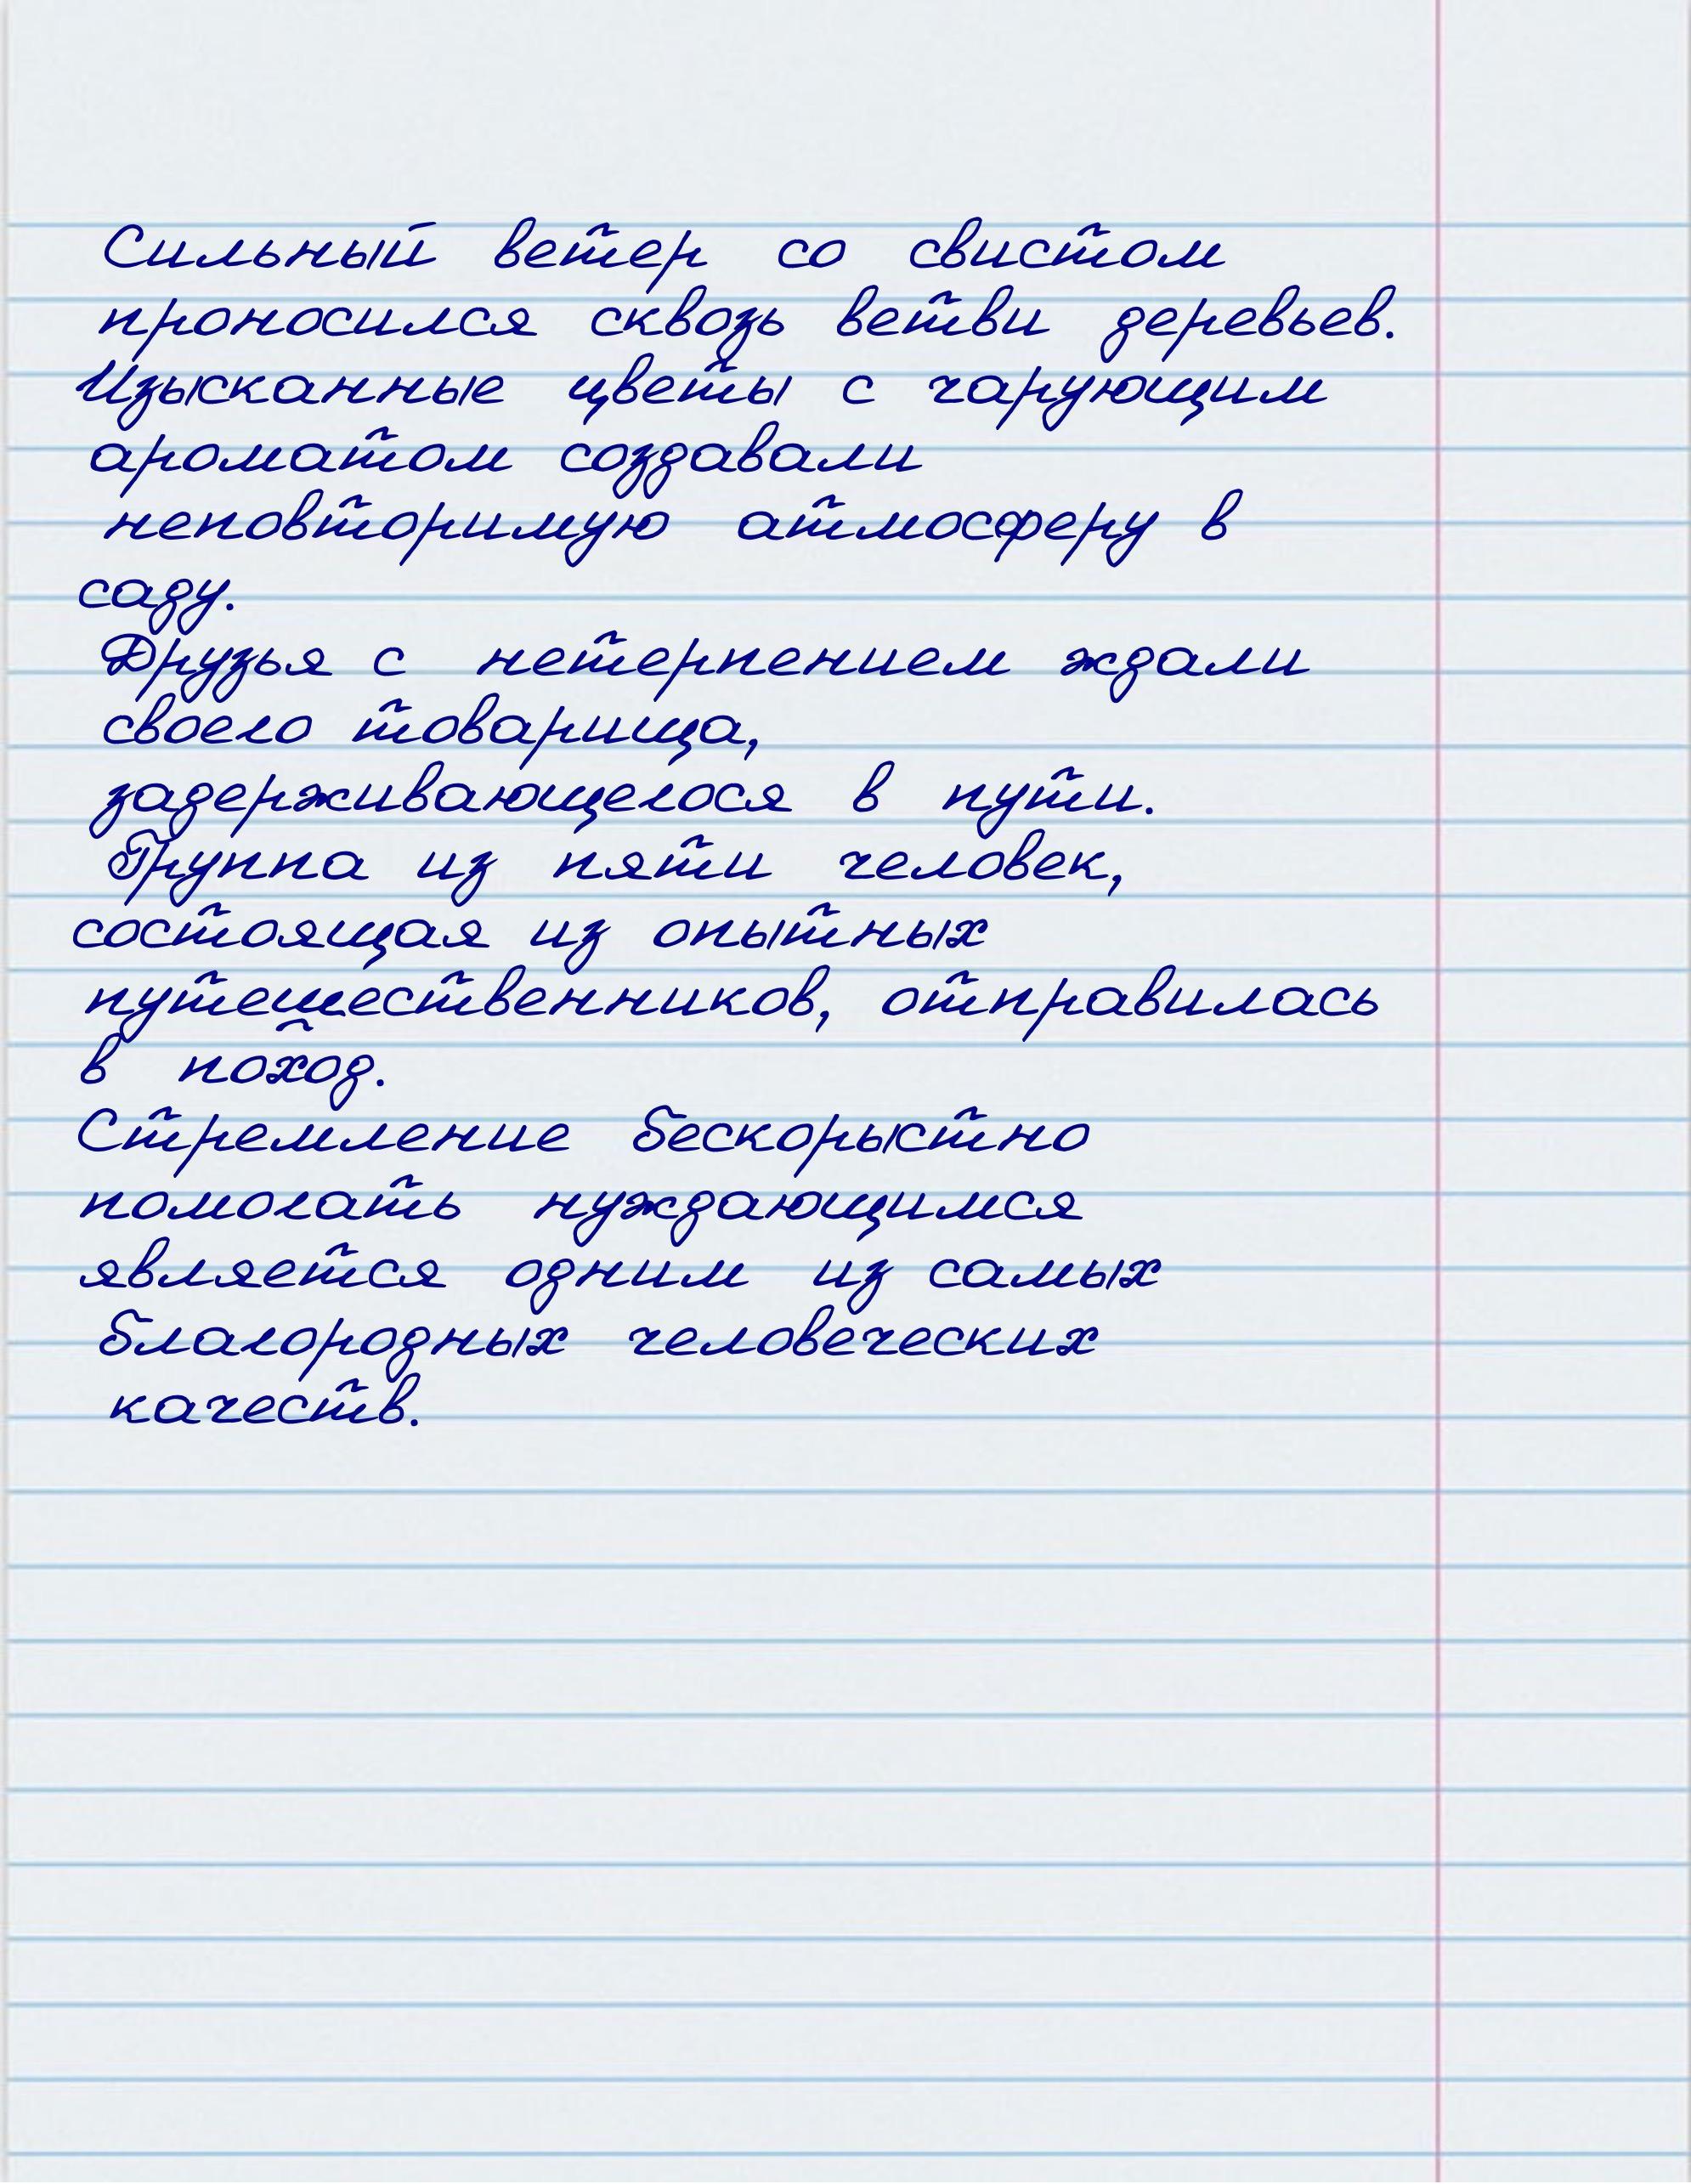 Сильный ветер со свистом
проносился сквозь ветви деревьев.
Изысканные цветы с чарующим
ароматом создавали
неповторимую атмосферу в
саду.
Друзья с нетерпением ждали
своего товарища,
задерживающегося в пути.
Группа из пяти человек,
состоящая из опытных
путешественников, отправилась
в поход.
Стремление бескорыстно
помогать нуждающимся
является одним из самых
благородных человеческих
качеств.